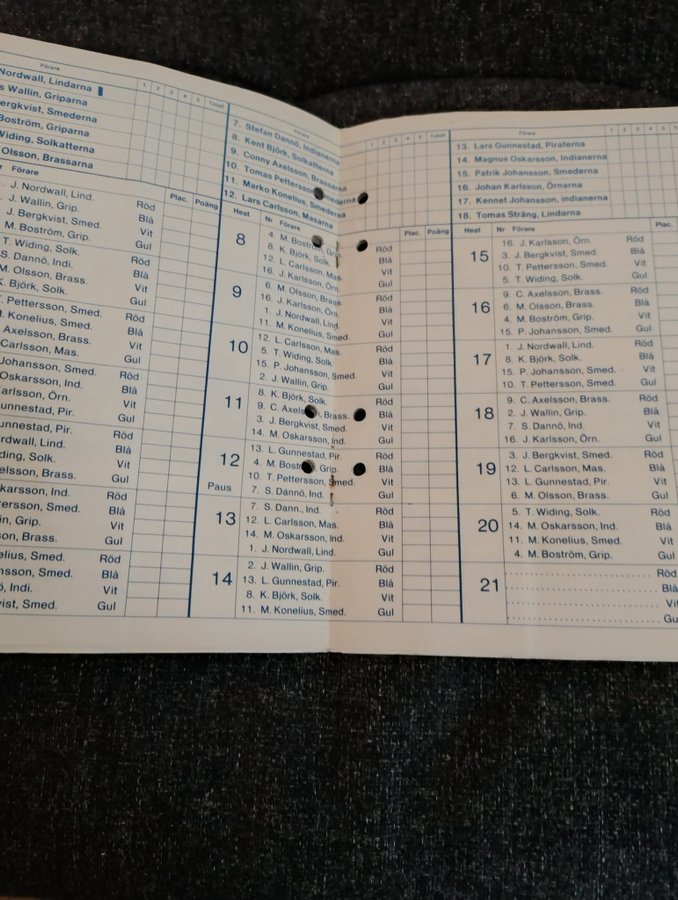 Förare
Nordwall, Lindarna
s Wallin, Griparna
ergkvist, Smederna
Boström, Griparna
Widing, Solkatterna
Olsson, Brassarna
1 2 3 4 5 Totalt
Förare
Plac. Poäng
J. Nordwall, Lind. Röd
J. Wallin, Grip. Blå
J. Bergkvist, Smed. Vit
M. Boström, Grip. Gul
T. Widing, Solk. Röd
S. Dannö, Indi. Blå
M. Olsson, Brass. Vit
K. Björk, Solk. Gul
T. Pettersson, Smed. Röd
M. Konelius, Smed. Blå
Axelsson, Brass. Vit
Carlsson, Mas. Gul
Johansson, Smed. Röd
Oskarsson, Ind. Blå
Karlsson, Örn. Vit
Gunnestad, Pir. Gul
unnestad, Pir. Röd
rdwall, Lind. Blå
ding, Solk. Vit
elsson, Brass. Gul
karsson, Ind. Röd
ergkvist, Smed. Blå
in, Grip. Vit
son, Brass. Gul
elius, Smed. Röd
nsson, Smed. Blå
ö, Indi. Vit
vist, Smed. Gul
Förare
1 2 3 4 5 Totalt
7. Stefan Dannö, Indianerna
8. Kent Björk, Solkatterna
9. Conny Axelsson, Brassarna
10. Tomas Pettersson, Smederna
11. Marko Konelius, Smederna
12. Lars Carlsson, Masarna
Heat Nr Förare Plac. Poäng
8
4. M. Boström, Grip. Röd
8. K. Björk, Solk. Blå
12. L. Carlsson, Mas. Vit
16. J. Karlsson, Örn. Gul
9
6. M. Olsson, Brass. Röd
16. J. Karlsson, Örn. Blå
1. J. Nordwall, Lind. Vit
11. M. Konelius, Smed. Gul
10
12. L. Carlsson, Mas. Röd
5. T. Widing, Solk. Blå
15. P. Johansson, Smed. Vit
2. J. Wallin, Grip. Gul
11
8. K. Björk, Solk. Röd
9. C. Axelsson, Brass. Blå
3. J. Bergkvist, Smed. Vit
14. M. Oskarsson, Ind. Gul
12
13. L. Gunnestad, Pir. Röd
4. M. Boström, Grip. Blå
10. T. Pettersson, Smed. Vit
Paus 7. S. Dannö, Ind. Gul
13
7. S. Dann., Ind. Röd
12. L. Carlsson, Mas. Blå
14. M. Oskarsson, Ind. Vit
1. J. Nordwall, Lind. Gul
14
2. J. Wallin, Grip. Röd
13. L. Gunnestad, Pir. Blå
8. K. Björk, Solk. Vit
11. M. Konelius, Smed. Gul
Förare
1 2 3 4 5
13. Lars Gunnestad, Piraterna
14. Magnus Oskarsson, Indianerna
15. Patrik Johansson, Smederna
16. Johan Karlsson, Örnarna
17. Kennet Johansson, Indianerna
18. Tomas Sträng, Lindarna
Heat Nr Förare Plac.
15
16. J. Karlsson, Örn. Röd
3. J. Bergkvist, Smed. Blå
10. T. Pettersson, Smed. Vit
5. T. Widing, Solk. Gul
16
9. C. Axelsson, Brass. Röd
6. M. Olsson, Brass. Blå
4. M. Boström, Grip. Vit
15. P. Johansson, Smed. Gul
17
1. J. Nordwall, Lind. Röd
8. K. Björk, Solk. Blå
15. P. Johansson, Smed. Vit
10. T. Pettersson, Smed. Gul
18
9. C. Axelsson, Brass. Röd
2. J. Wallin, Grip. Blå
7. S. Dannö, Ind. Vit
16. J. Karlsson, Örn. Gul
19
3. J. Bergkvist, Smed. Röd
12. L. Carlsson, Mas. Blå
13. L. Gunnestad, Pir. Vit
6. M. Olsson, Brass. Gul
20
5. T. Widing, Solk. Röd
14. M. Oskarsson, Ind. Blå
11. M. Konelius, Smed. Vit
4. M. Boström, Grip. Gul
21
Röd
Blå
Vit
Gu